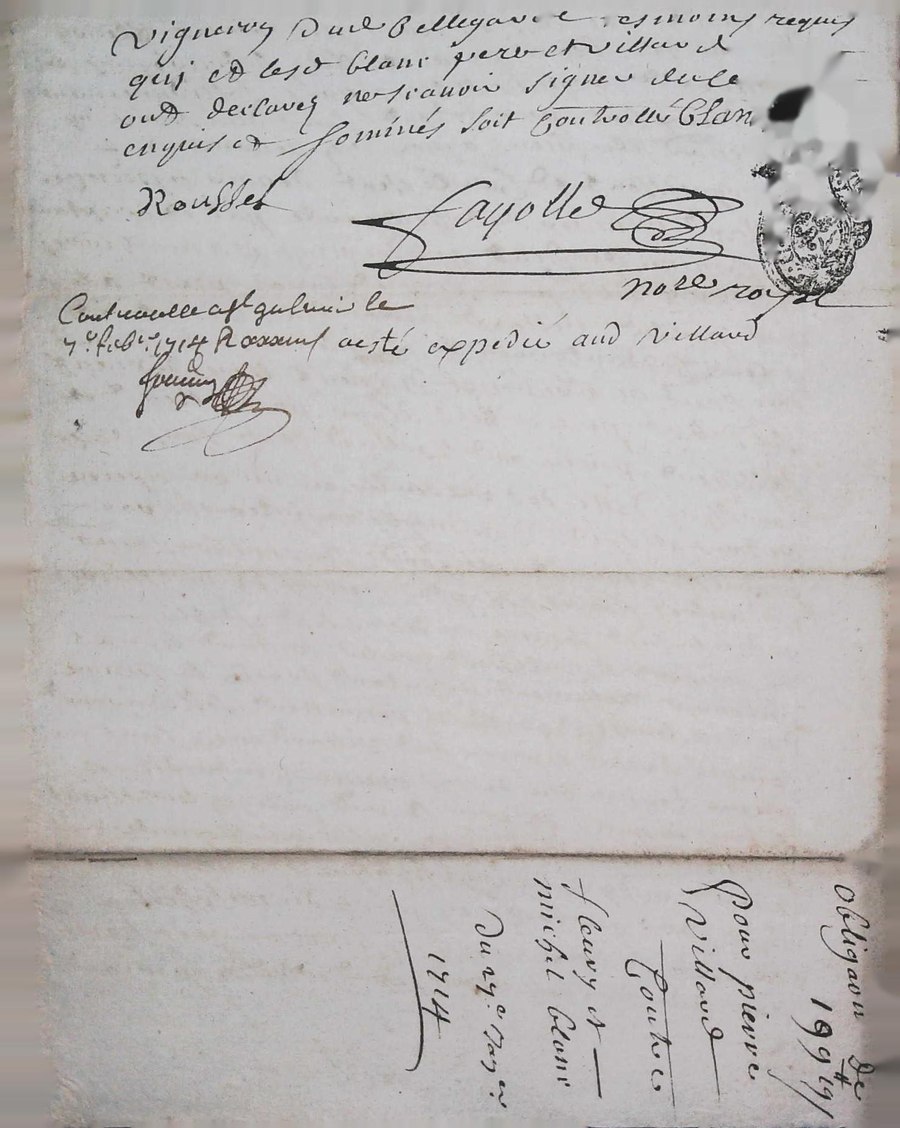 vigneron dud Bellegarde tesmoins requis
qui et lesd blanc pere et villard
ont declarez ne scavoir signer de ce
enquis et sommés soit Controllé Blan
Rousset
fayolle
no.re royal
Controolle a st galmier le
7.e feb.er 1714 R
a esté expedié aud villard
obligaon de
Pour pierre
villard
Contre
fleury et
michel blanc
Du 29.e
1714